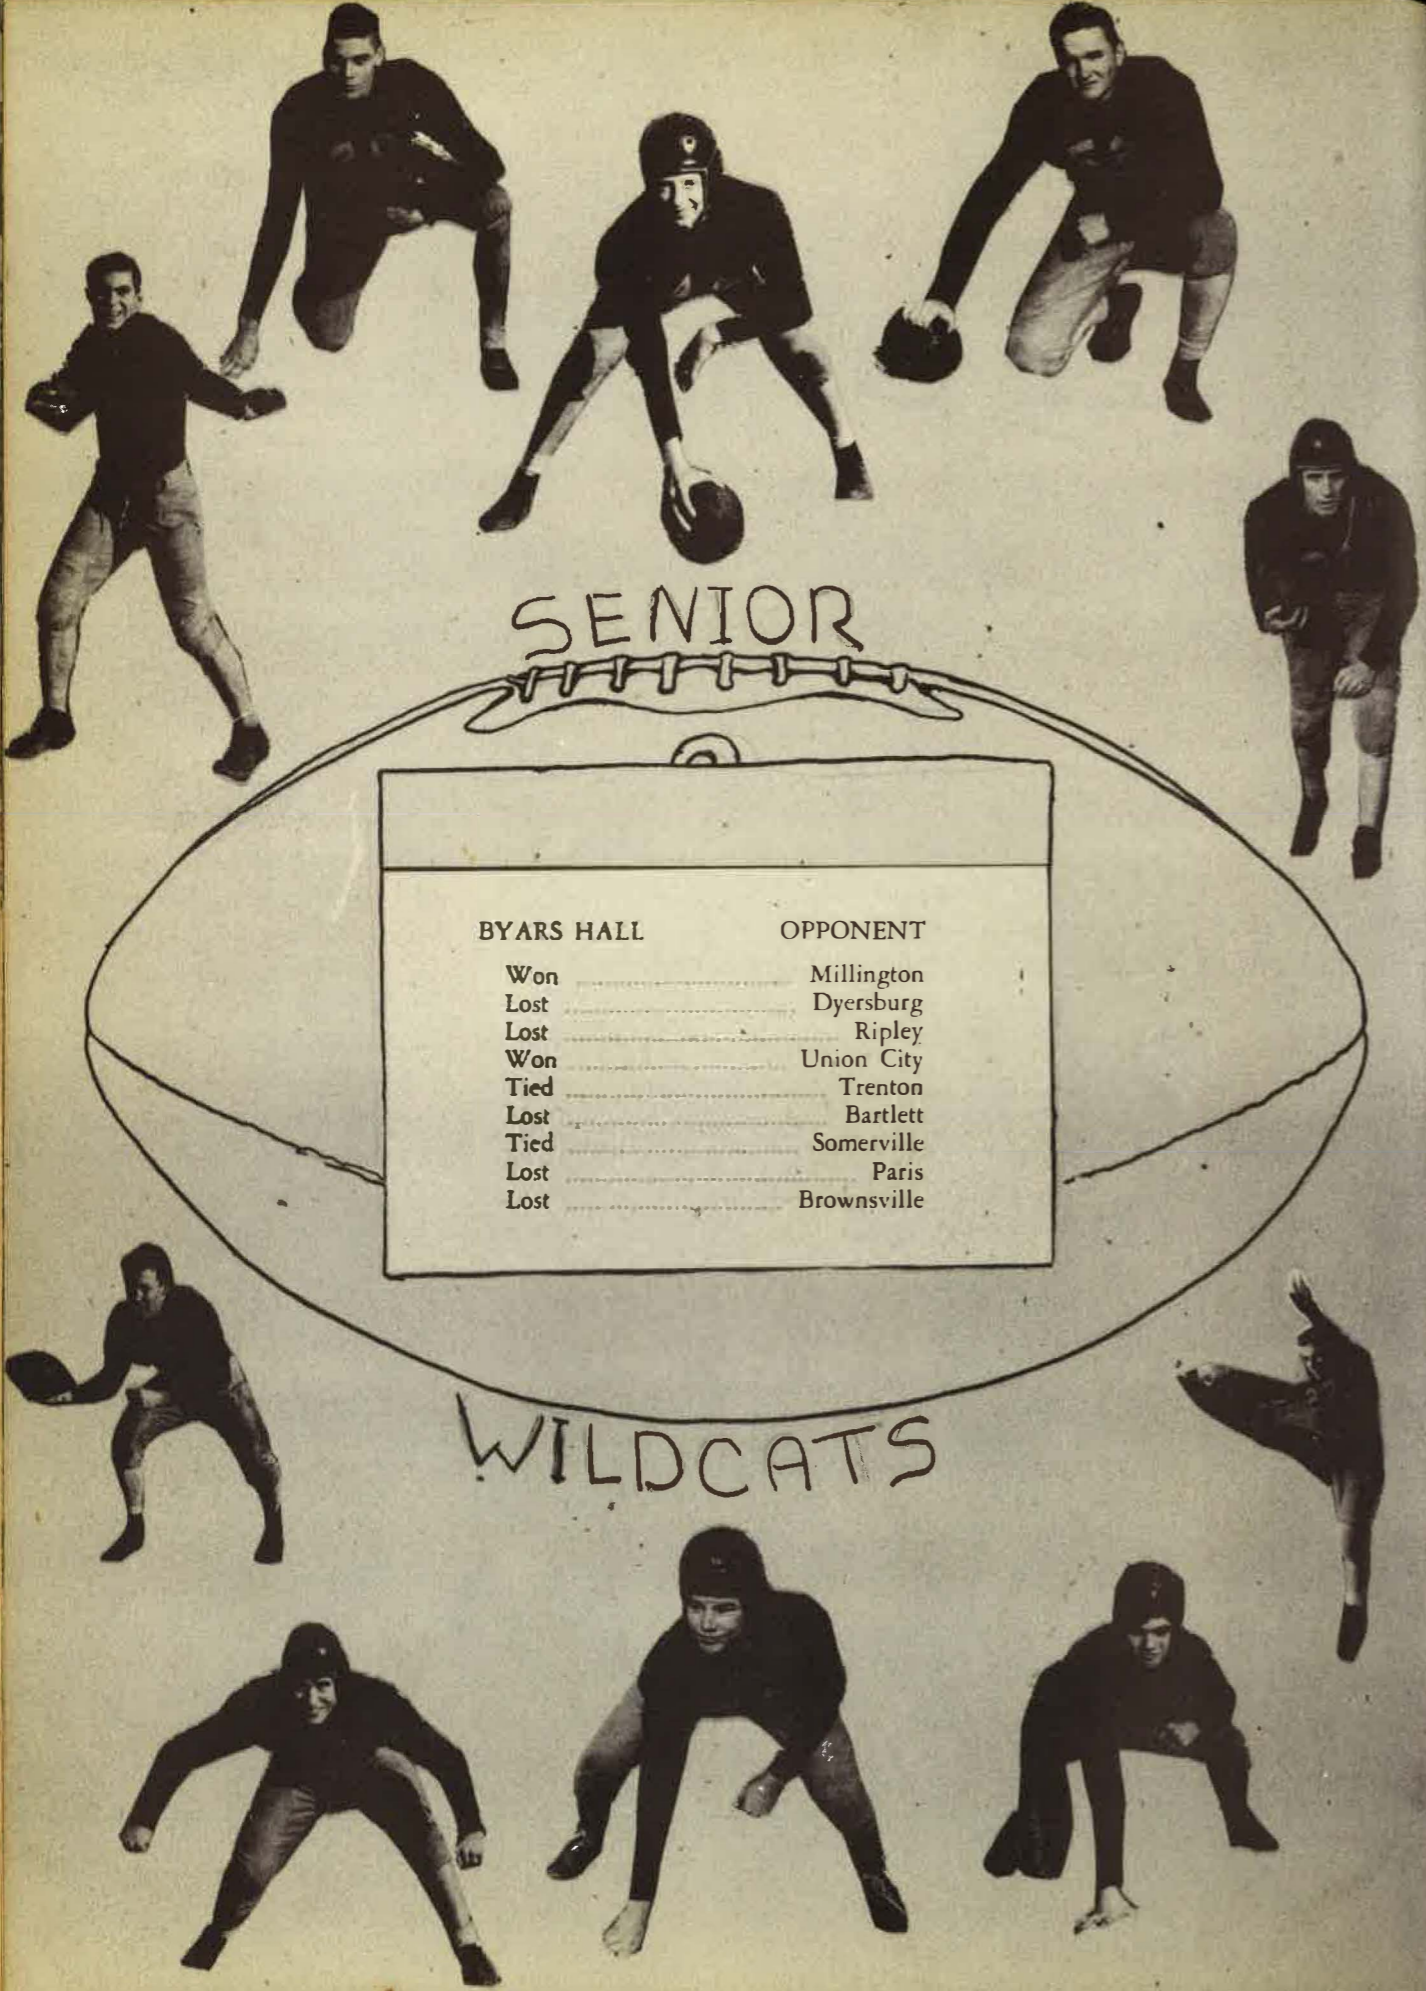 SENIOR
BYARS HALL OPPONENT
Won ........ Millington
Lost ........ Dyersburg
Lost ........ Ripley
Won ........ Union City
Tied ........ Trenton
Lost ........ Bartlett
Tied ........ Somerville
Lost ........ Paris
Lost ........ Brownsville
WILDCATS